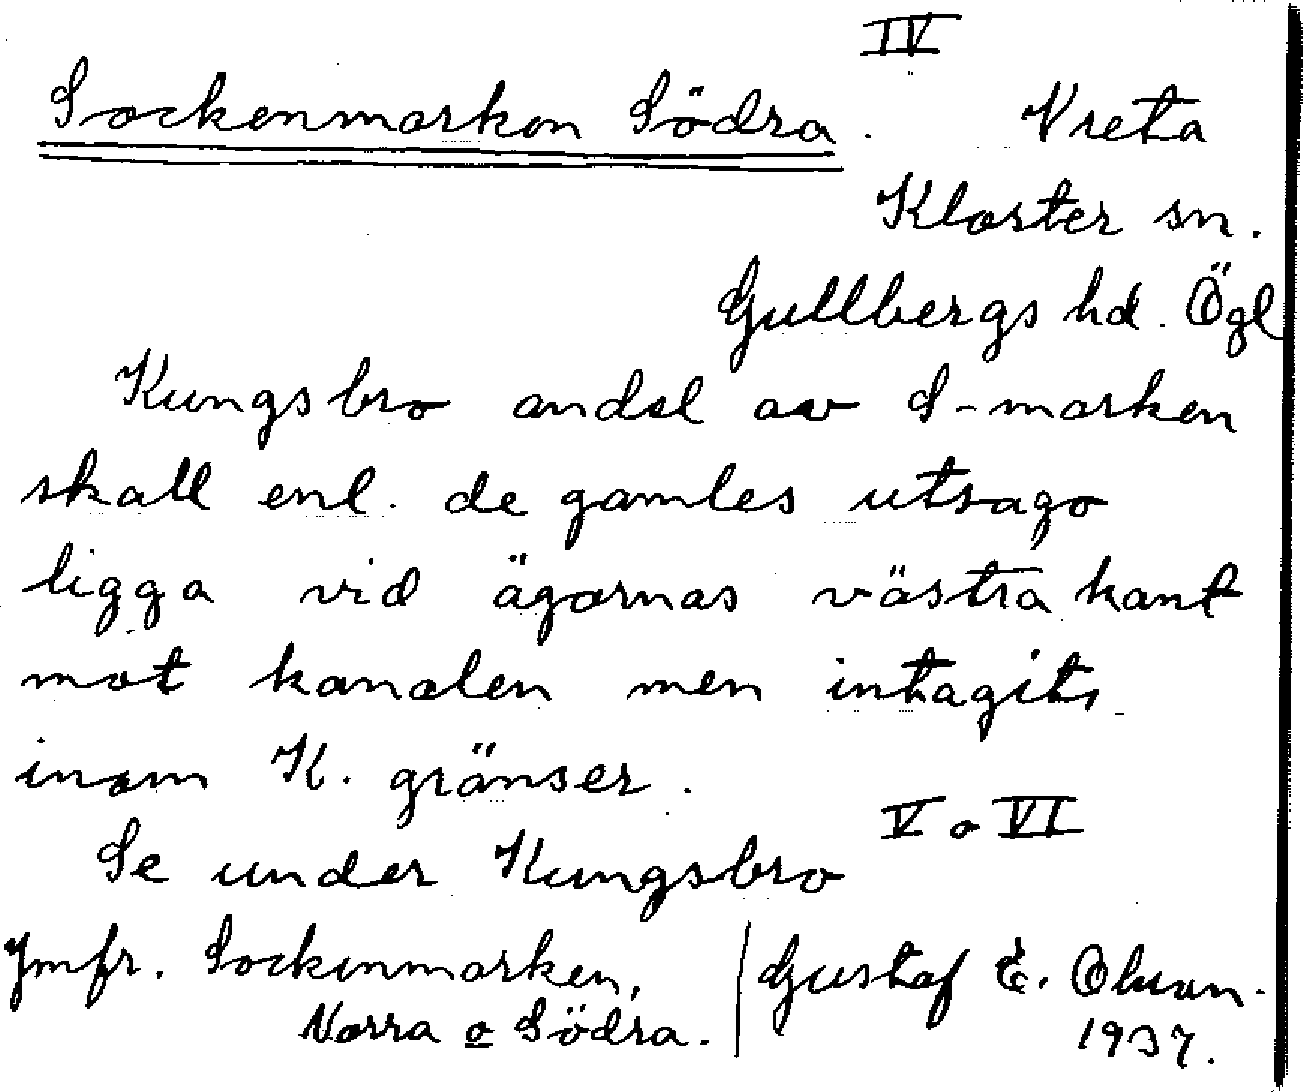 IV
Sockenmarken Södra. Vreta
Kloster sn.
Gullbergs hd. Ögl
Kungsbro andel av S-marken
skall enl. de gamles utsago
ligga vid ägornas västra kant
mot kanalen men intagits
inom K. gränser.
Se under Kungsbro V o VI
Jmfr. Sockenmarken,
Norra o Södra.
Gustaf E. Olsson.
1937.